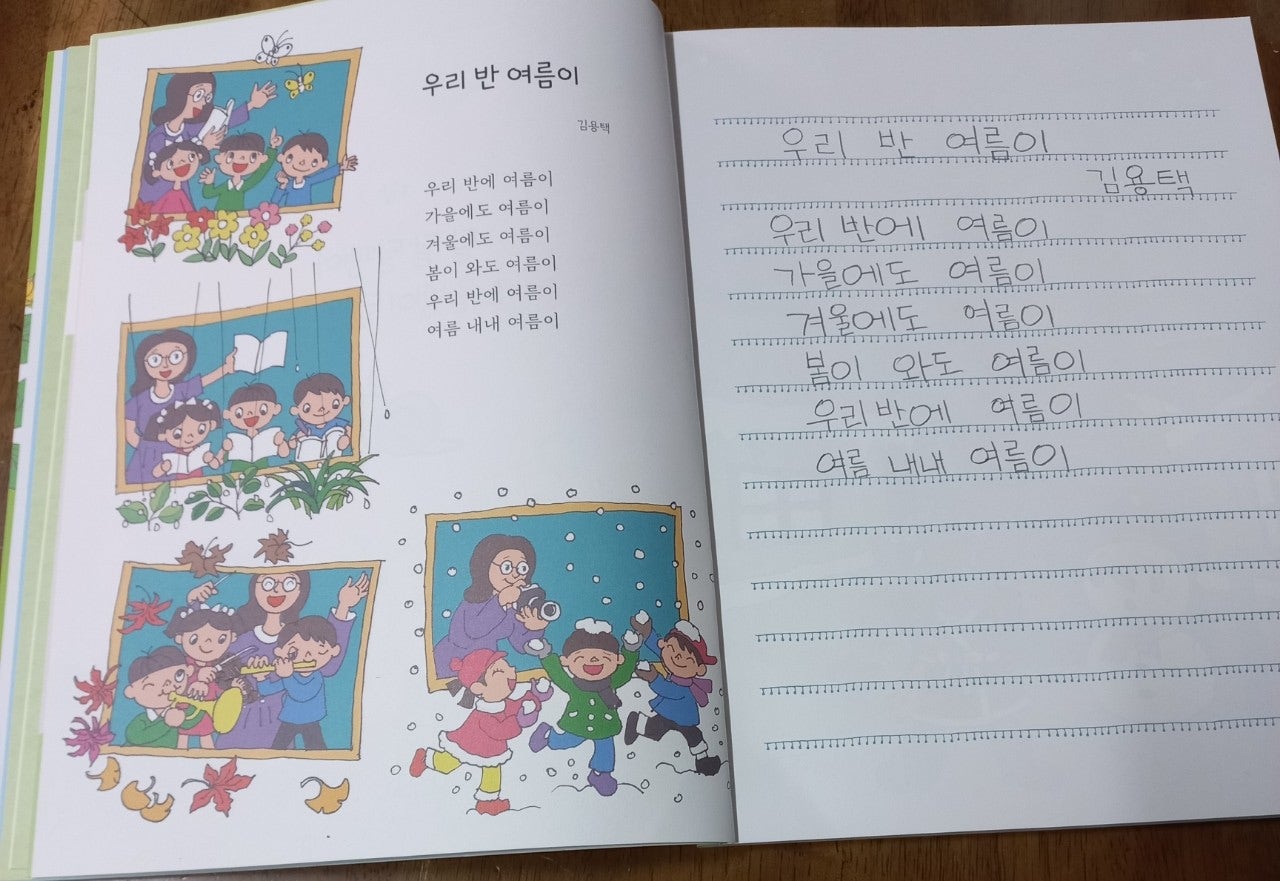 우리 반 여름이
김용택
우리 반에 여름이
가을에도 여름이
겨울에도 여름이
봄이 와도 여름이
우리 반에 여름이
여름 내내 여름이
우리 반 여름이
김용택
우리 반에 여름이
가을에도 여름이
겨울에도 여름이
봄이 와도 여름이
우리 반에 여름이
여름 내내 여름이